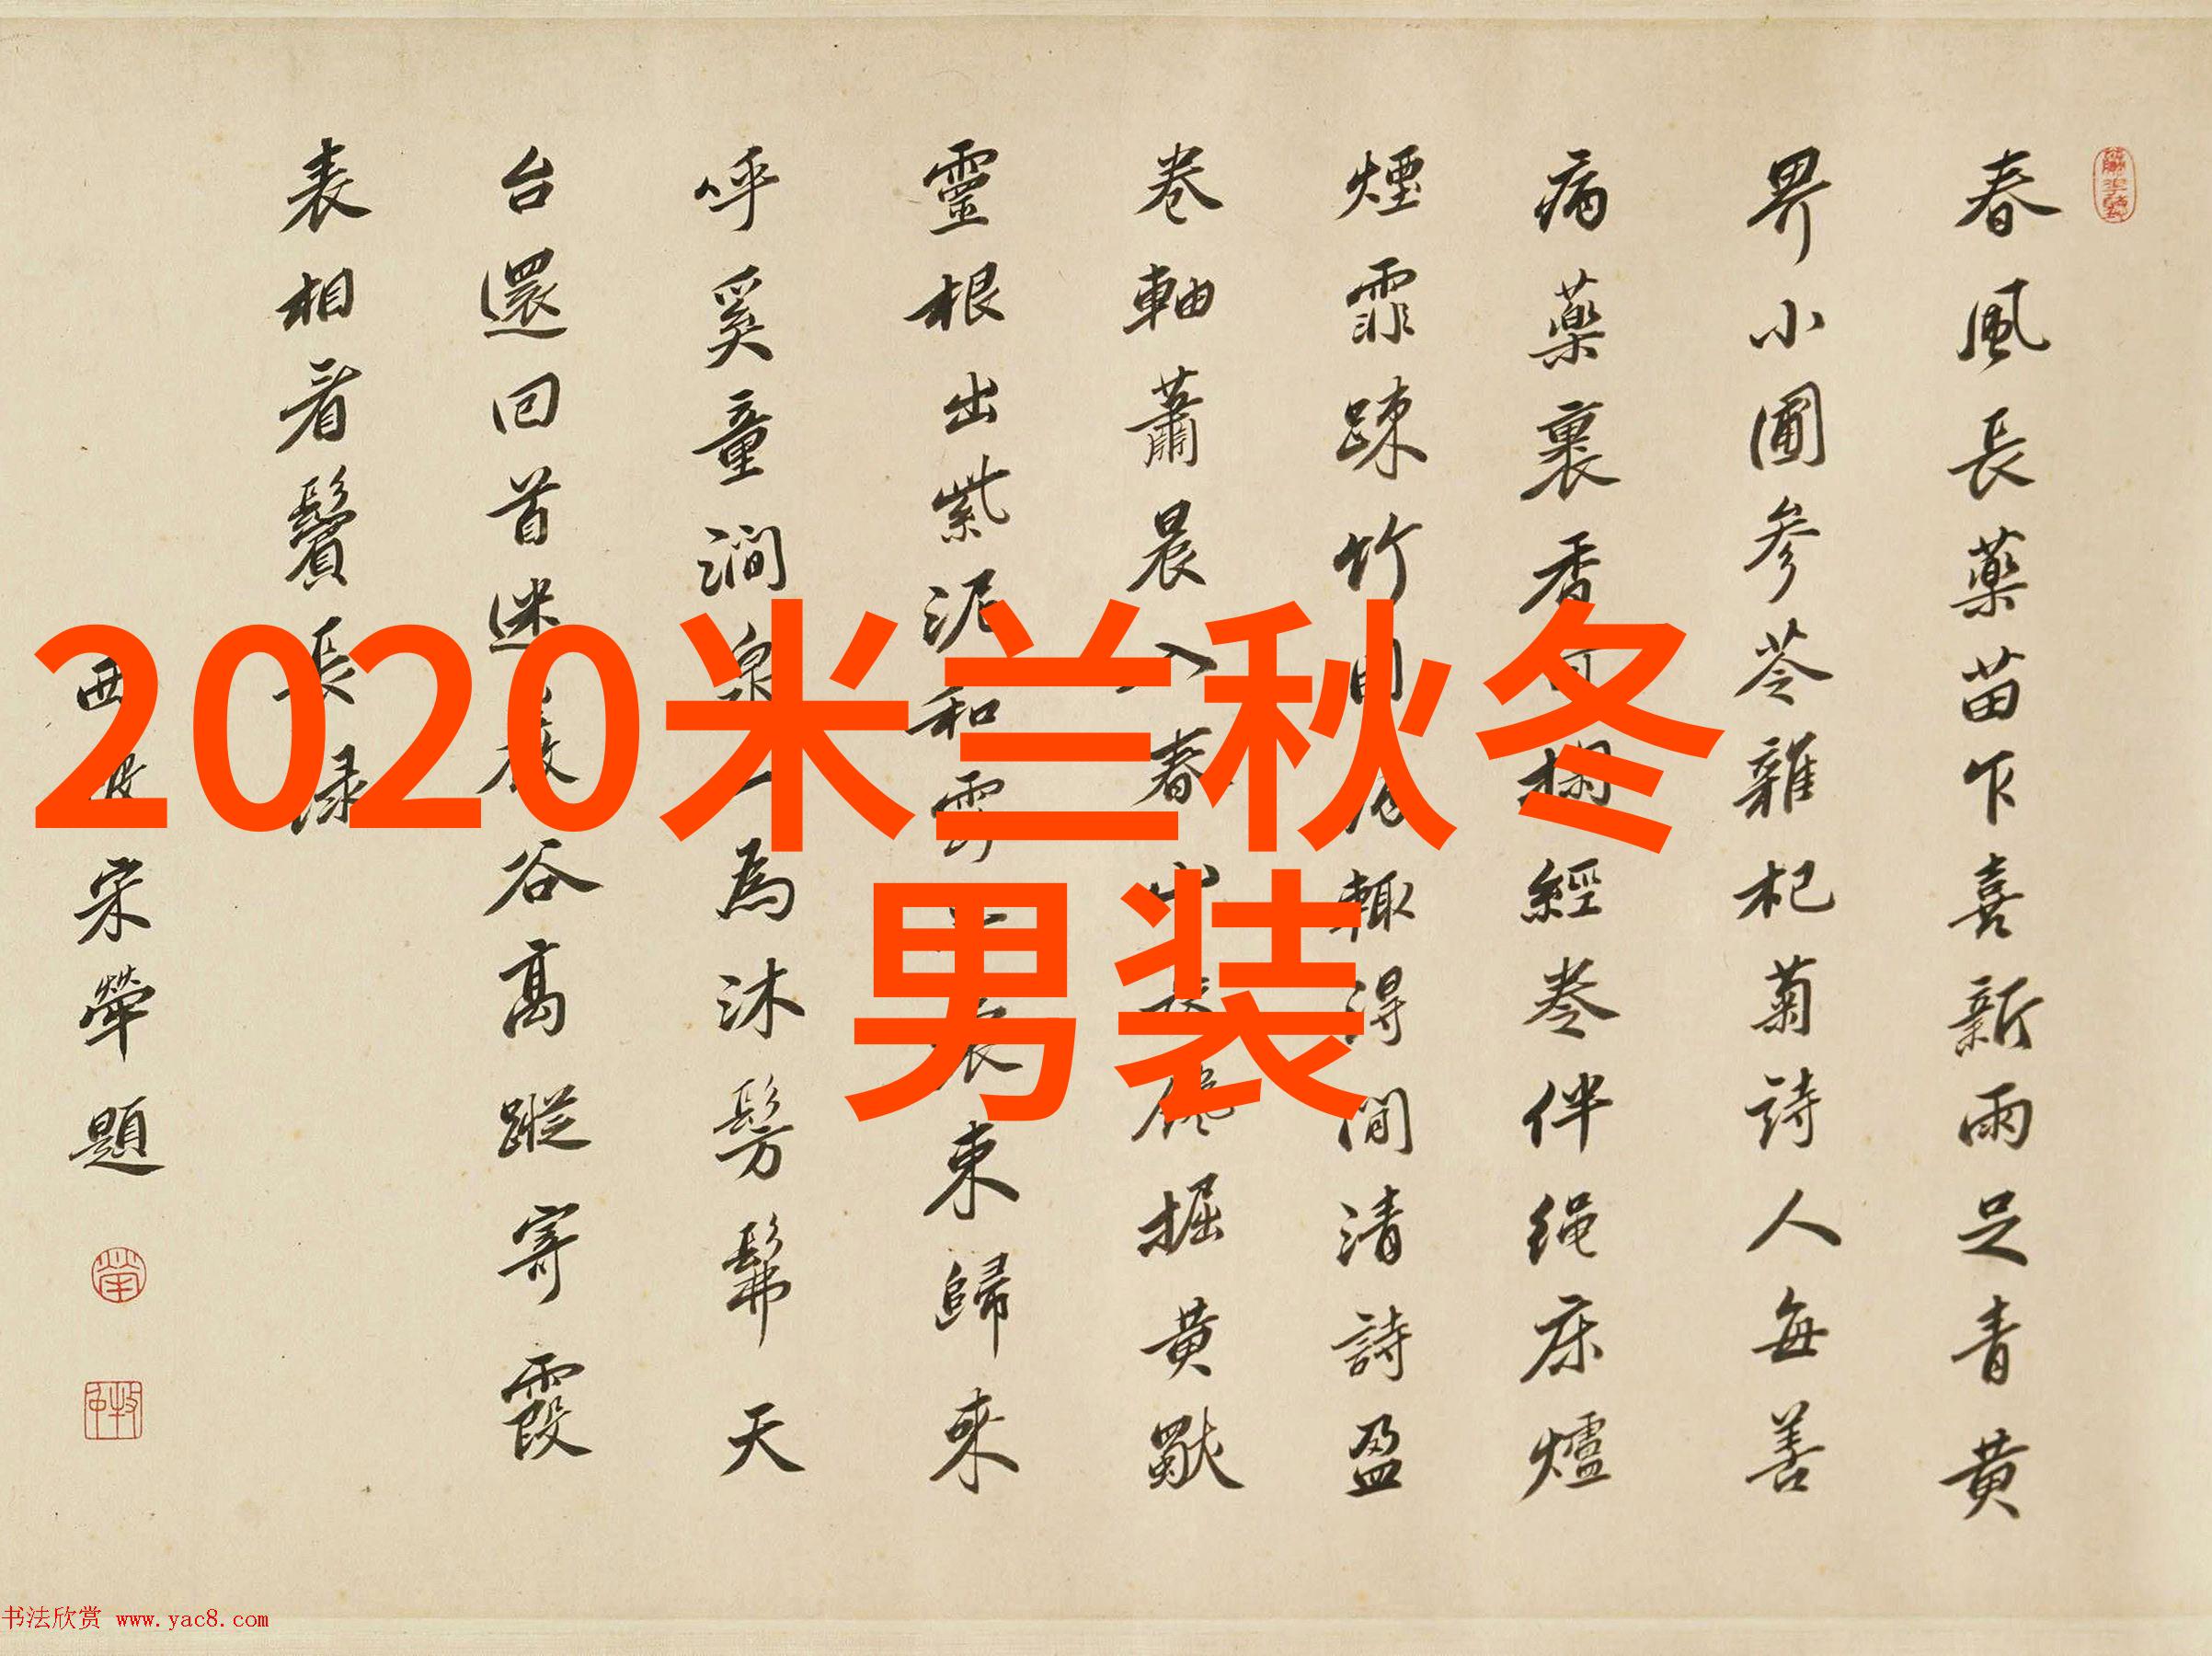 2020米兰秋冬
男装
春風長藥苗乍喜新雨足青黄
畀小圃参苓雜杞菊詩人每善
病藥裹香 經卷伴绳床爐
煙霏疎竹 輙得閒清詩盈
卷軸蕭晨入春山 掘黄獸
靈根出紫泥和雲 東歸來
呼奚童澗泉 為沐髣髴天
台還回首迷 谷高蹤寄霞
表相看鬢長渌
西陂宋犖題
书法欣赏 www.yac8.com